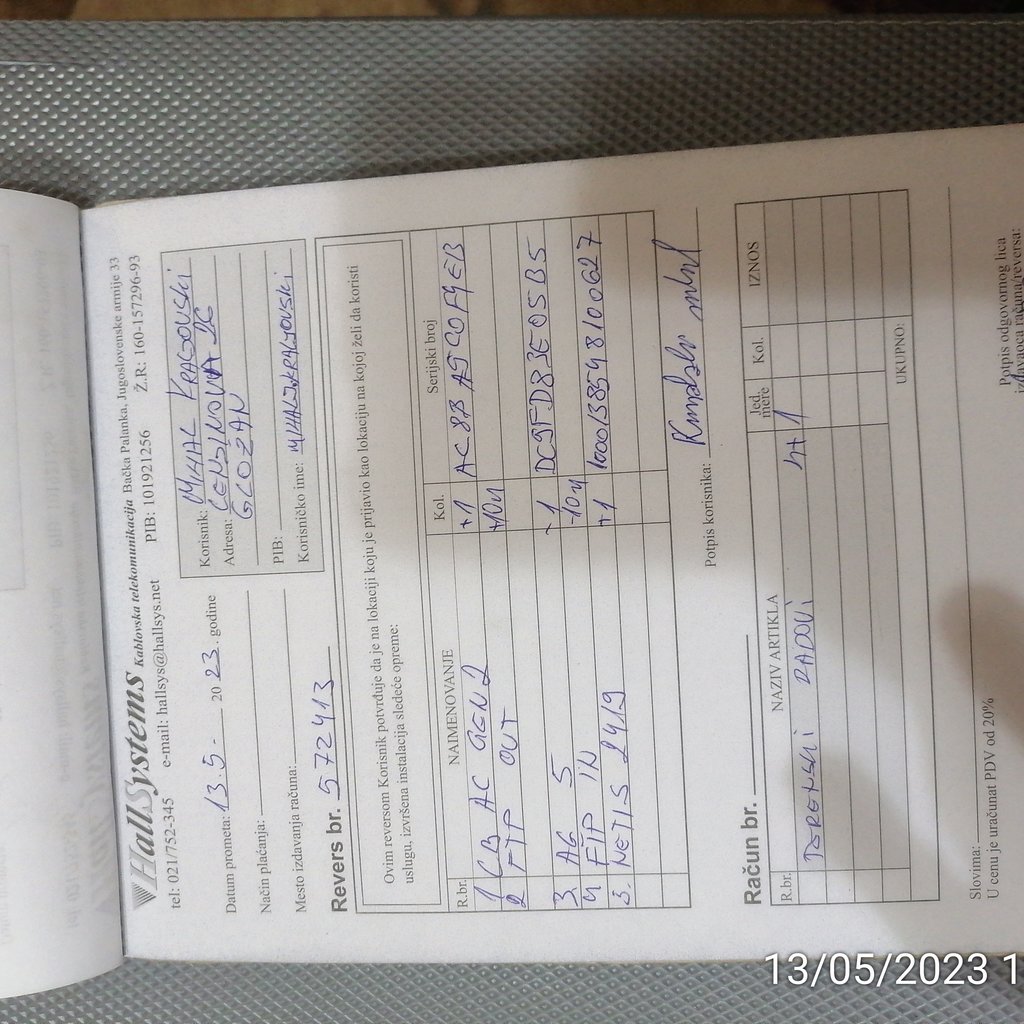 HallSystems Kablovska telekomunikacija Bačka Palanka, Jugoslovenske armije 33
tel: 021/752-345 e-mail: hallsys@hallsys.net PIB: 101921256 Ž.R: 160-157296-93
Datum prometa: 13.5- 2023. godine
Način plaćanja:
Mesto izdavanja računa:
Korisnik: MIHAL KRAGOVSKI
Adresa: 26
GLOŽAN
PIB:
Korisničko ime:
Revers br. 572413
Ovim reversom Korisnik potvrđuje da je na lokaciji koju je prijavio kao lokaciju na kojoj želi da koristi
uslugu, izvršena instalacija sledeće opreme:
R.br. NAIMENOVANJE Kol. Serijski broj
1 CB AC GEN2 +1
2 FTP OUT +10m
3. AG 5 -1 DC9FDB3E05B5
4 FTP IN -10m
5. NETIS 2419 +1
Potpis korisnika:
Račun br.
R.br. NAZIV ARTIKLA Jed. mere Kol. IZNOS
TERENSKI RADOVI 4+1
UKUPNO:
Slovima:
U cenu je uračunat PDV od 20%
Potpis odgovornog lica
izdavaoca računa/reversa:
13/05/2023 1